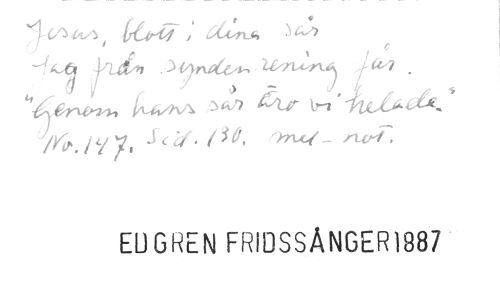 Jesus, blott i dina sår
Jag från synden rening får.
"Genom hans sår äro vi helade."
No. 147. Sid. 130. mel - not.
EDGREN FRIDSSÅNGER 1887